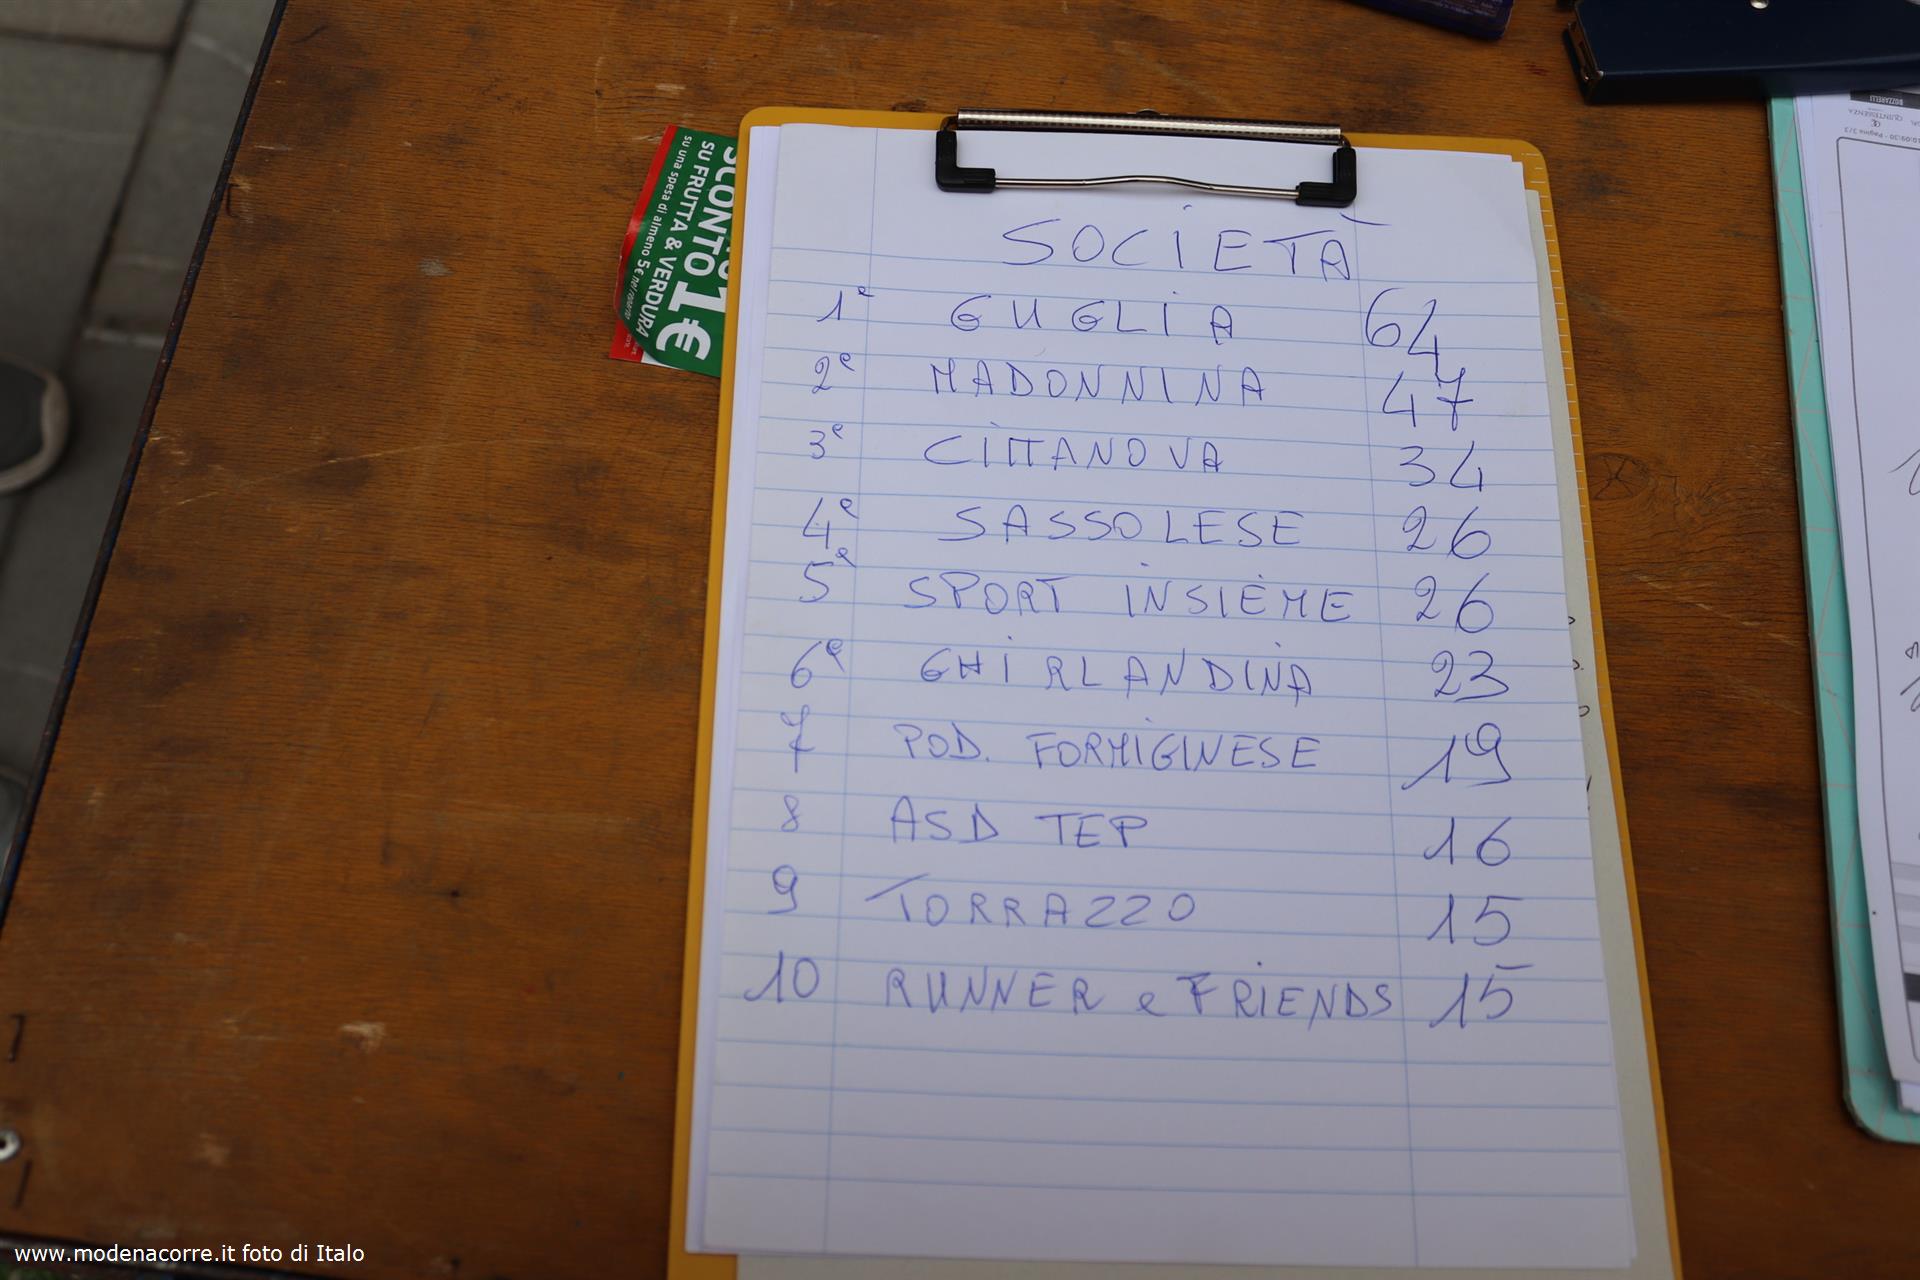 SOCIETÀ
1ª GUGLIA 64
2ª MADONNINA 47
3ª CITTANOVA 34
4ª SASSOLESE 26
5ª SPORT INSIEME 26
6ª GHIRLANDINA 23
7 POD. FORMIGINESE 19
8 ASD TEP 16
9 TORRAZZO 15
10 RUNNER e FRIENDS 15
SCONTO 1€
SU FRUTTA & VERDURA
su una spesa di almeno 5€
BOZZARELLI
QUINTESSENZA
Pagina 3/3
www.modenacorre.it foto di Italo